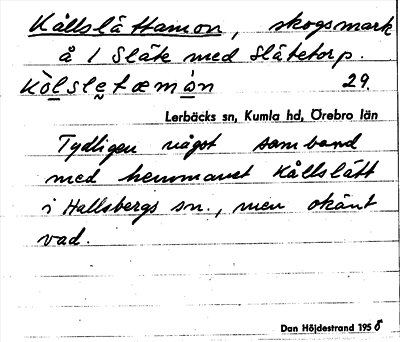 Kållslättamon, skogsmark
å 1 Släte med Slätetorp.
Kòlsletæmòn 29.
Lerbäcks sn, Kumla hd, Örebro län
Tydligen något samband
med hemmanet Kållslätt
i Hallsbergs sn., men okänt
vad.
Dan Höjdestrand 1958